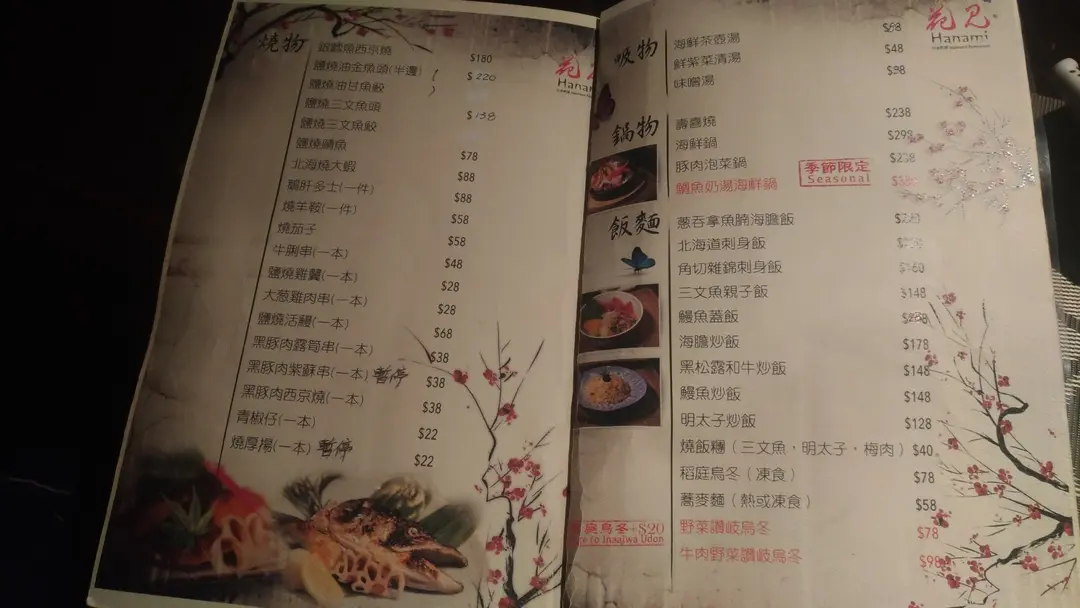 燒物
花見
Hanami
銀鱈魚西京燒 $180
鹽燒油金魚頭(半邊) $220
鹽燒油甘魚鮫
鹽燒三文魚頭 $138
鹽燒三文魚鮫
鹽燒鯖魚 $78
北海燒大蝦 $88
鵝肝多士(一件) $88
燒羊鞍(一件) $58
燒茄子 $58
牛脷串(一本) $48
鹽燒雞翼(一本) $28
大葱雞肉串(一本) $28
鹽燒活鰻(一本) $68
黑豚肉露筍串(一本) $38
黑豚肉紫蘇串(一本) 暫停 $38
黑豚肉西京燒(一本) $38
青椒仔(一本) $22
燒厚揚(一本) 暫停 $22
花見
Hanami
吸物
海鮮茶壺湯 $68
鮮紫菜清湯 $48
味噌湯
鍋物
壽喜燒 $238
海鮮鍋 $298
豚肉泡菜鍋
鯛魚奶湯海鮮鍋
季節限定
Seasonal
飯麵
蔥吞拿魚腩海膽飯
北海道刺身飯
角切雜錦刺身飯
三文魚親子飯 $148
鰻魚蓋飯
海膽炒飯 $178
黑松露和牛炒飯 $148
鰻魚炒飯 $148
明太子炒飯 $128
燒飯糰（三文魚，明太子，梅肉） $40
稻庭烏冬（凍食） $78
蕎麥麵（熱或凍食） $58
野菜讚岐烏冬 $78
牛肉野菜讚岐烏冬 $98
烏冬+$20
to Inaniwa Udon